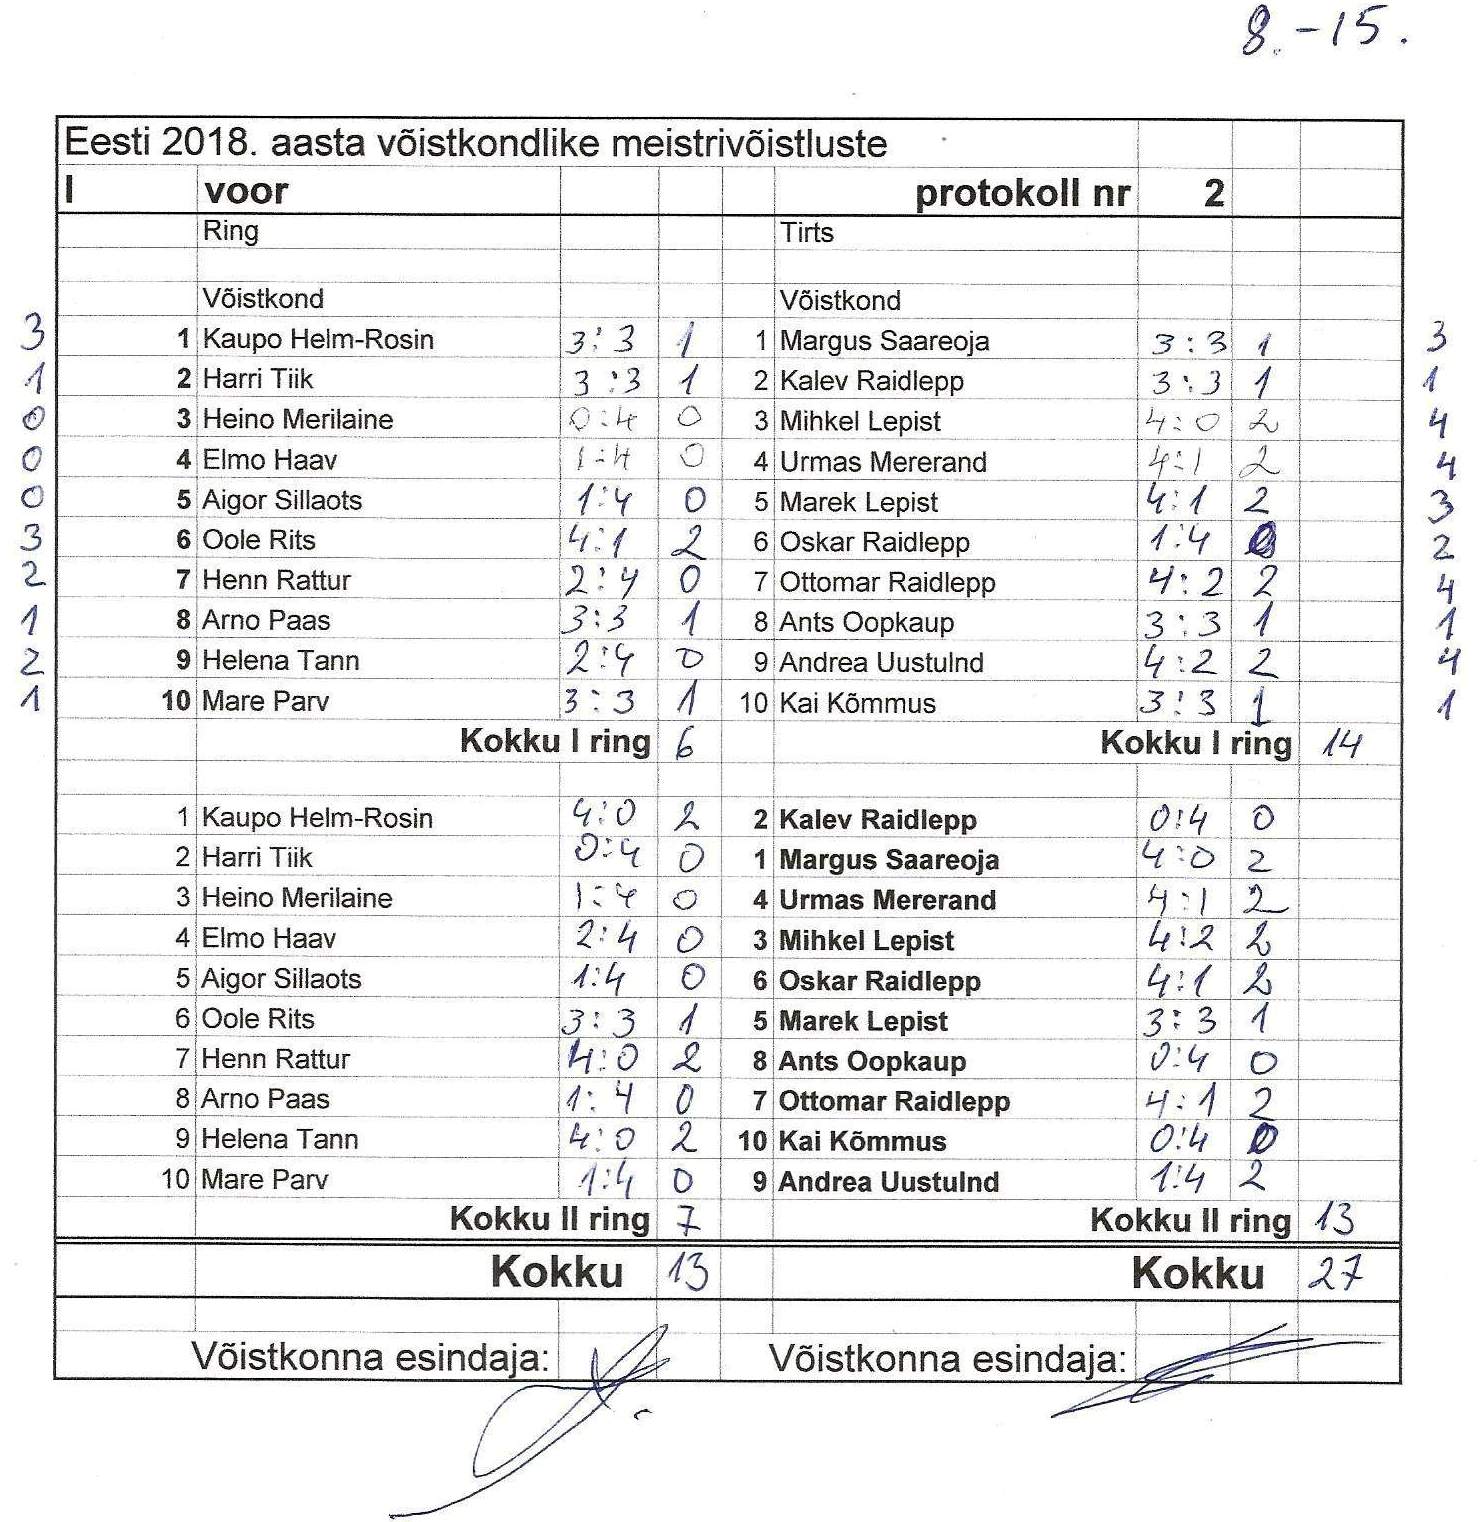 8. - 15.
Eesti 2018. aasta võistkondlike meistrivõistluste
I voor protokoll nr 2
Ring Tirts
Võistkond Võistkond
3 1 Kaupo Helm-Rosin 3:3 1 1 Margus Saareoja 3:3 1 3
1 2 Harri Tiik 3:3 1 2 Kalev Raidlepp 3:3 1 1
0 3 Heino Merilaine 0:4 0 3 Mihkel Lepist 4:0 2 4
0 4 Elmo Haav 1:4 0 4 Urmas Mererand 4:1 2 4
0 5 Aigor Sillaots 1:4 0 5 Marek Lepist 4:1 2 3
3 6 Oole Rits 4:1 2 6 Oskar Raidlepp 1:4 0 2
2 7 Henn Rattur 2:4 0 7 Ottomar Raidlepp 4:2 2 4
1 8 Arno Paas 3:3 1 8 Ants Oopkaup 3:3 1 1
2 9 Helena Tann 2:4 0 9 Andrea Uustulnd 4:2 2 4
1 10 Mare Parv 3:3 1 10 Kai Kõmmus 3:3 1 1
Kokku I ring 6 Kokku I ring 14
1 Kaupo Helm-Rosin 4:0 2 2 Kalev Raidlepp 0:4 0
2 Harri Tiik 0:4 0 1 Margus Saareoja 4:0 2
3 Heino Merilaine 1:4 0 4 Urmas Mererand 4:1 2
4 Elmo Haav 2:4 0 3 Mihkel Lepist 4:2 2
5 Aigor Sillaots 1:4 0 6 Oskar Raidlepp 4:1 2
6 Oole Rits 3:3 1 5 Marek Lepist 3:3 1
7 Henn Rattur 4:0 2 8 Ants Oopkaup 0:4 0
8 Arno Paas 1:4 0 7 Ottomar Raidlepp 4:1 2
9 Helena Tann 4:0 2 10 Kai Kõmmus 0:4 0
10 Mare Parv 1:4 0 9 Andrea Uustulnd 1:4 2
Kokku II ring 7 Kokku II ring 13
Kokku 13 Kokku 27
Võistkonna esindaja: Võistkonna esindaja: